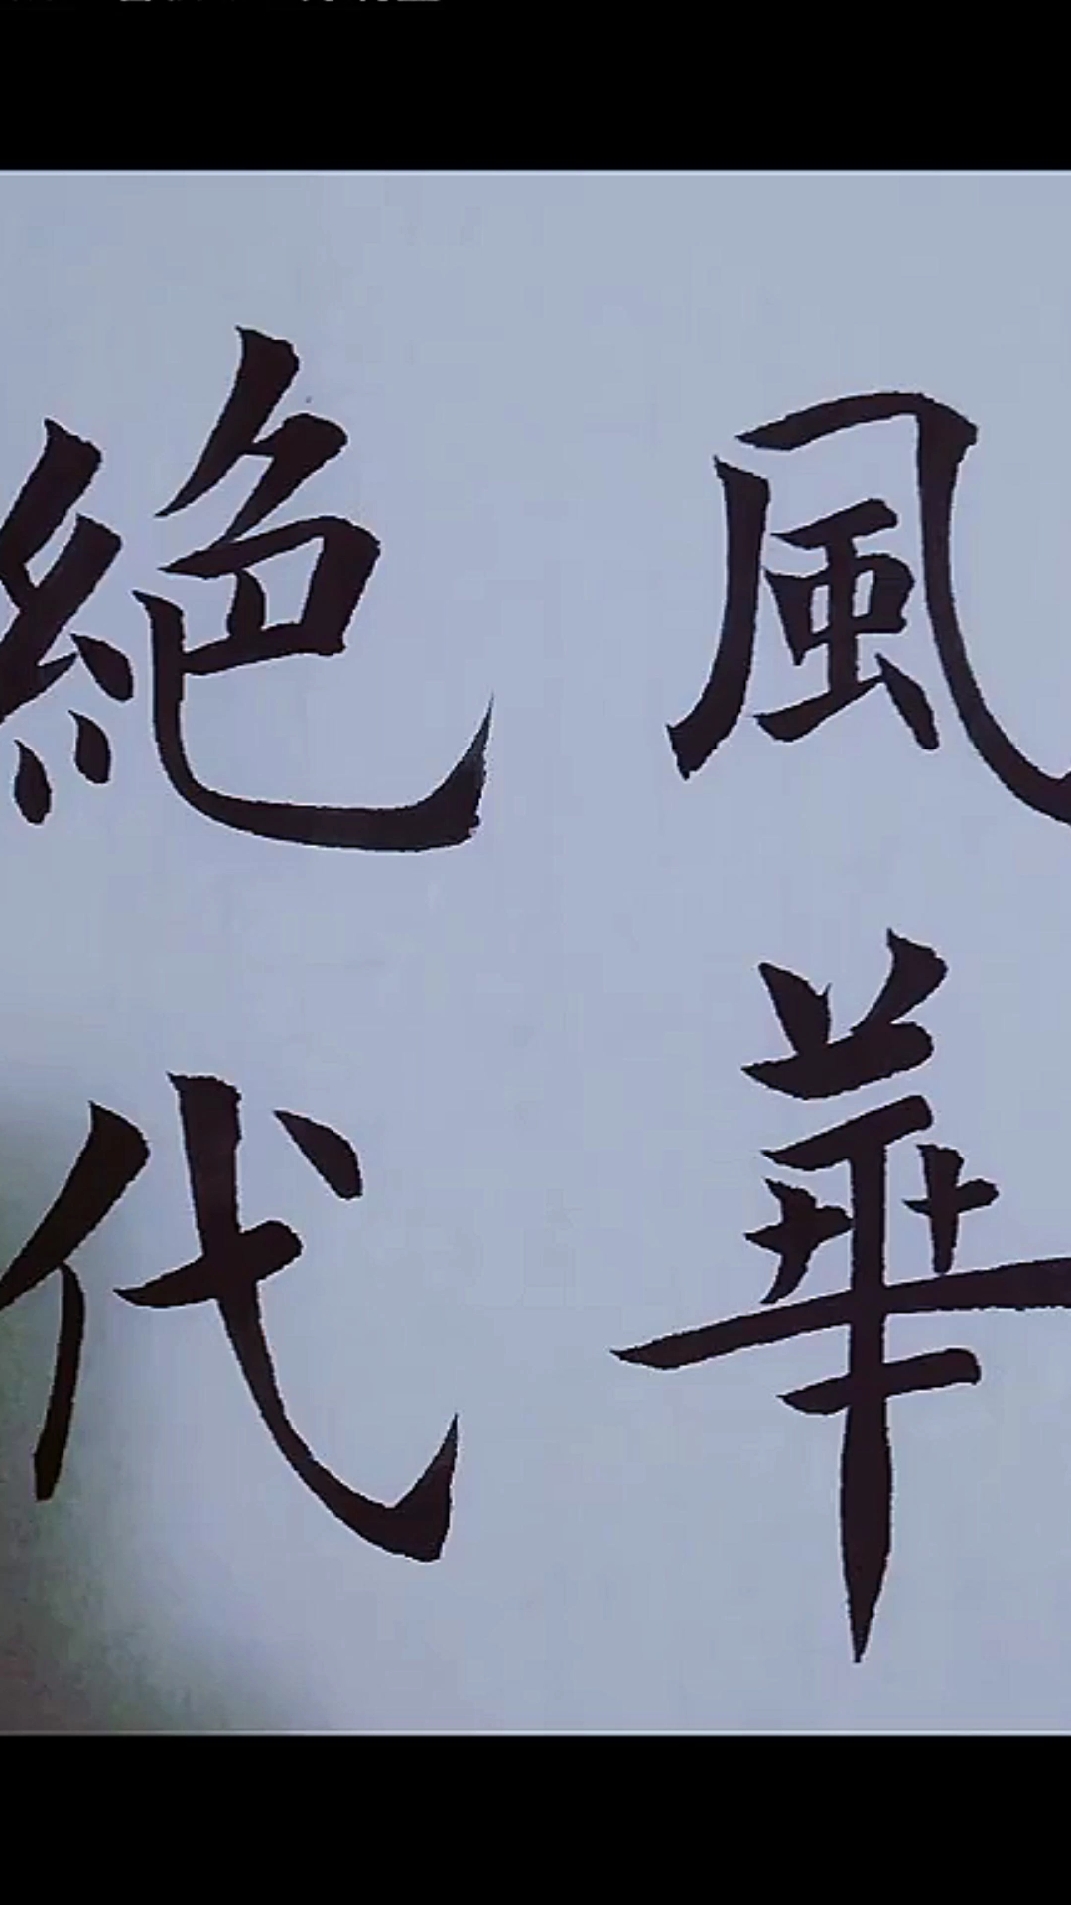 風華
絕代